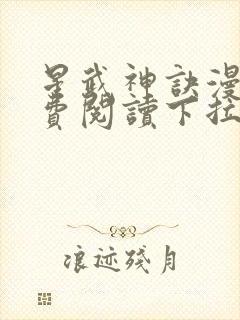 星武神訣漫
費閱讀下拉
浪迹殘月